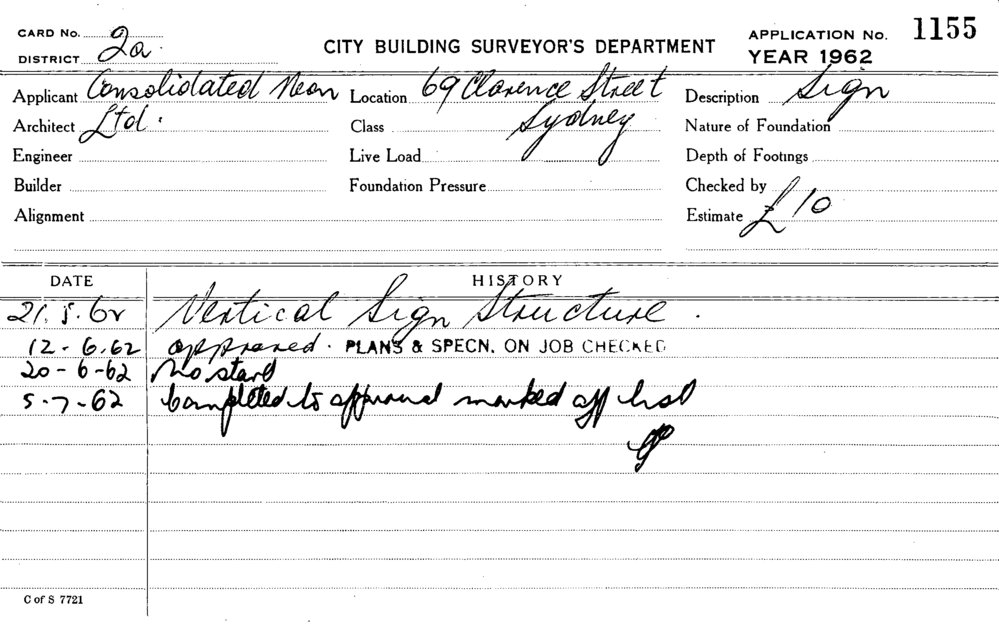 CARD No. 2a. CITY BUILDING SURVEYOR'S DEPARTMENT APPLICATION No. 1155
DISTRICT YEAR 1962
Applicant Consolidated Neon Location 69 Clarence Street Description Sign
Architect Ltd. Class Sydney Nature of Foundation
Engineer Live Load Depth of Footings
Builder Foundation Pressure Checked by
Alignment Estimate £10
DATE HISTORY
21.5.62 Vertical Sign Structure.
12-6.62 approved. PLANS & SPECN. ON JOB CHECKED
20-6-62 No start
5-7-62 Completed to approval marked off list
C of S 7721